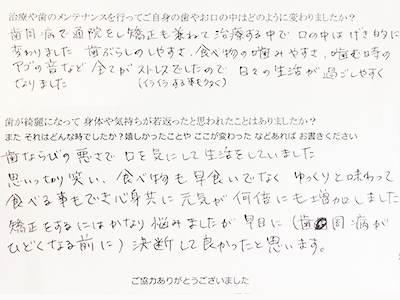 治療や歯のメンテナンスを行ってご自身の歯やお口の中はどのように変わりましたか？
歯周病で通院をし矯正も兼ねて治療する中で口の中はげき的に
変わりました 歯ぶらしのしやすさ、食べ物の噛みやすさ、噛む時の
アゴの音など全てがストレスでしたので 日々の生活が過ごしやすく
なりました （イライラする事も多く）
歯が綺麗になって 身体や気持ちが若返ったと思われたことはありましたか？
また それはどんな時でしたか？嬉しかったことや ここが変わった などあれば お書きください
歯ならびの悪さで口を気にして生活をしていました
思いっきり笑い、食べ物も早食いでなく ゆっくりと味わって
食べる事もでき心身共に元気が何倍にも増加しました
矯正をするにはかなり悩みましたが早目に（歯周病が
ひどくなる前に）決断して良かったと思います。
ご協力ありがとうございました